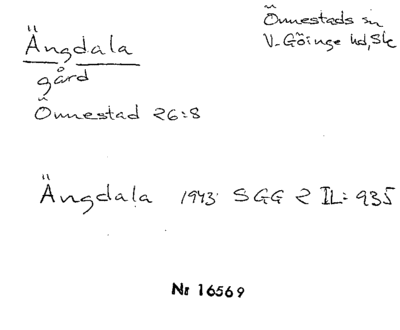 Ängdala
gård
Önnestad 26:8
Önnestads sn
V. Göinge hd, Sk
Ängdala 1943 SGG 2 II: 935
Nr 16569